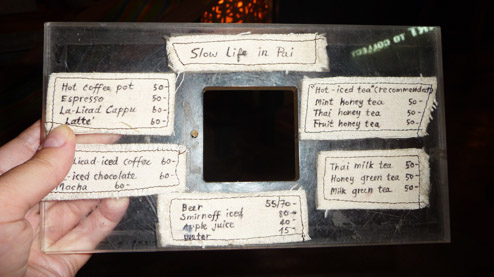 Slow Life in Pai
Hot coffee pot 50-
Espresso 50-
La-Liead Cappu 60-
Latte' 60-
Liead iced coffee 60-
iced chocolate 60-
Mocha 60-
"Hot-iced tea" (recommended)
Mint honey tea 50-
Thai honey tea 50-
Fruit honey tea 50-
Thai milk tea 50-
Honey green tea 50-
Milk green tea 50-
Beer 55/70-
Smirnoff iced 80-
Apple juice 20-
Water 15-
TO COLLECT